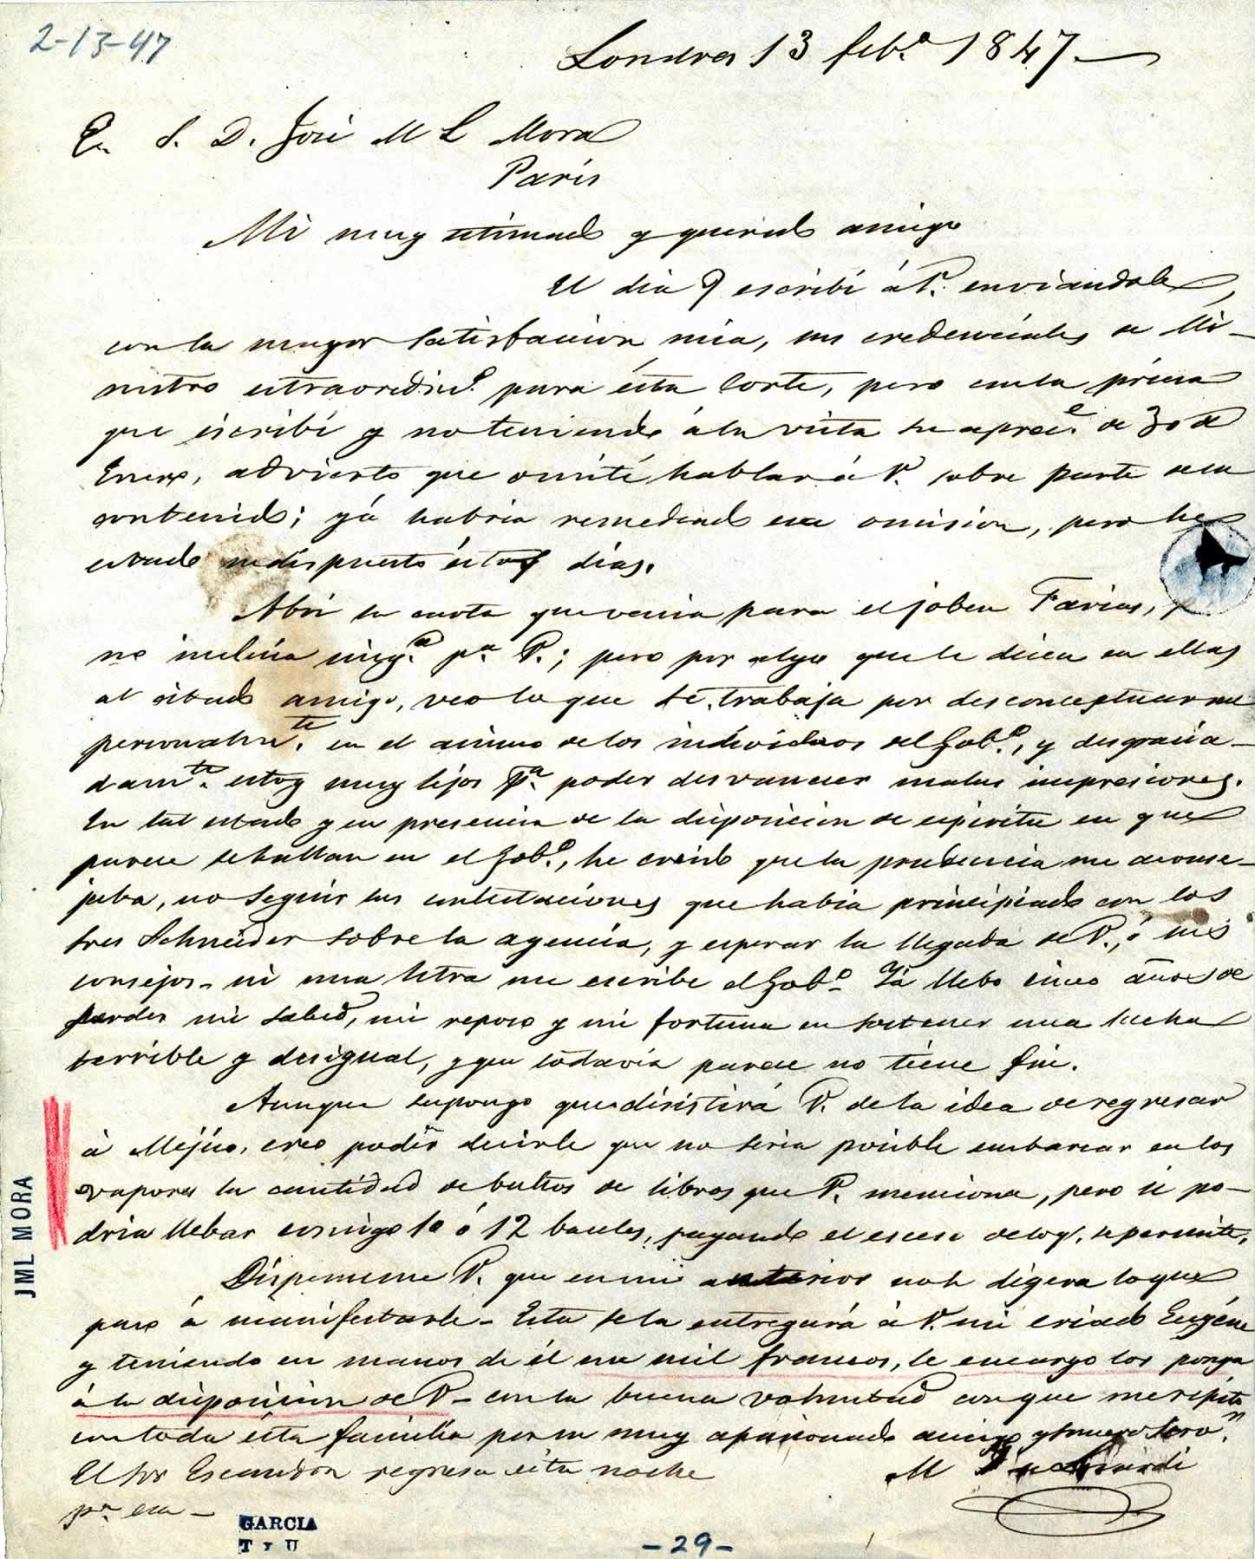 2-13-47
Londres 13 feb.º 1847.
E. S. D. José M L Mora
París
Mi muy estimado y querido amigo
El dia 9 escribí á V. enviandole,
con la mayor satisfaccion mia, sus credenciales de Mi-
nistro estraordin.º para ésta Corte, pero con la prisa
que escribí y no teniendo á la vista su aprec.e de 30 de
Enero, advierto que omití hablar á V. sobre parte de su
contenido; yá habria remediado esa omision, pero he
estado indispuesto éstos días.
Abrí la carta que venia para el joben Farias,
no incluia ning.a p.a V.; pero por algo que le dicen en ellas
al citado amigo, veo lo que se trabaja por desconceptuarme
personalm.te en el animo de los individuos del Gob.º, y desgracia-
dam.te estoy muy lejos p.a poder desvanecer malas impresiones.
En tal estado y en presencia de la disposicion de espiritu en que
parece se hallan en el Gob.º, he creido que la prudencia me aconse-
jaba, no seguir las contestaciones que habia principiado con los
Sres Schneider sobre la agencia, y esperar la llegada de V., ó sus
consejos - ni una letra me escribe el Gob.º Yá llebo cinco años de
perder mi salud, mi reposo y mi fortuna en sostener una lucha
terrible y desigual, y que todavía parece no tiene fin.
Aunque supongo que desistirá V. de la idea de regresar
á Mejico, creo podér decirle que no seria posible embarcar en los
vapores la cantidad de bultos de libros que V. menciona, pero si po-
dria llebar consigo 10 ó 12 baules, pagando el esceso de lo q. se permite.
Dispenseme V. que en mi anterior no le digera lo que
paso á manifestarle - Esta se la entregará á V. mi criado Eugéne
y teniendo en manos de él mil francos, le encargo los ponga
á la disposicion de V - con la buena voluntad con que me repito
con toda ésta familia por su muy apasionado amigo
El Sor Escandon regresa ésta noche
p.a esa -
M
JML MORA
GARCIA
-29-